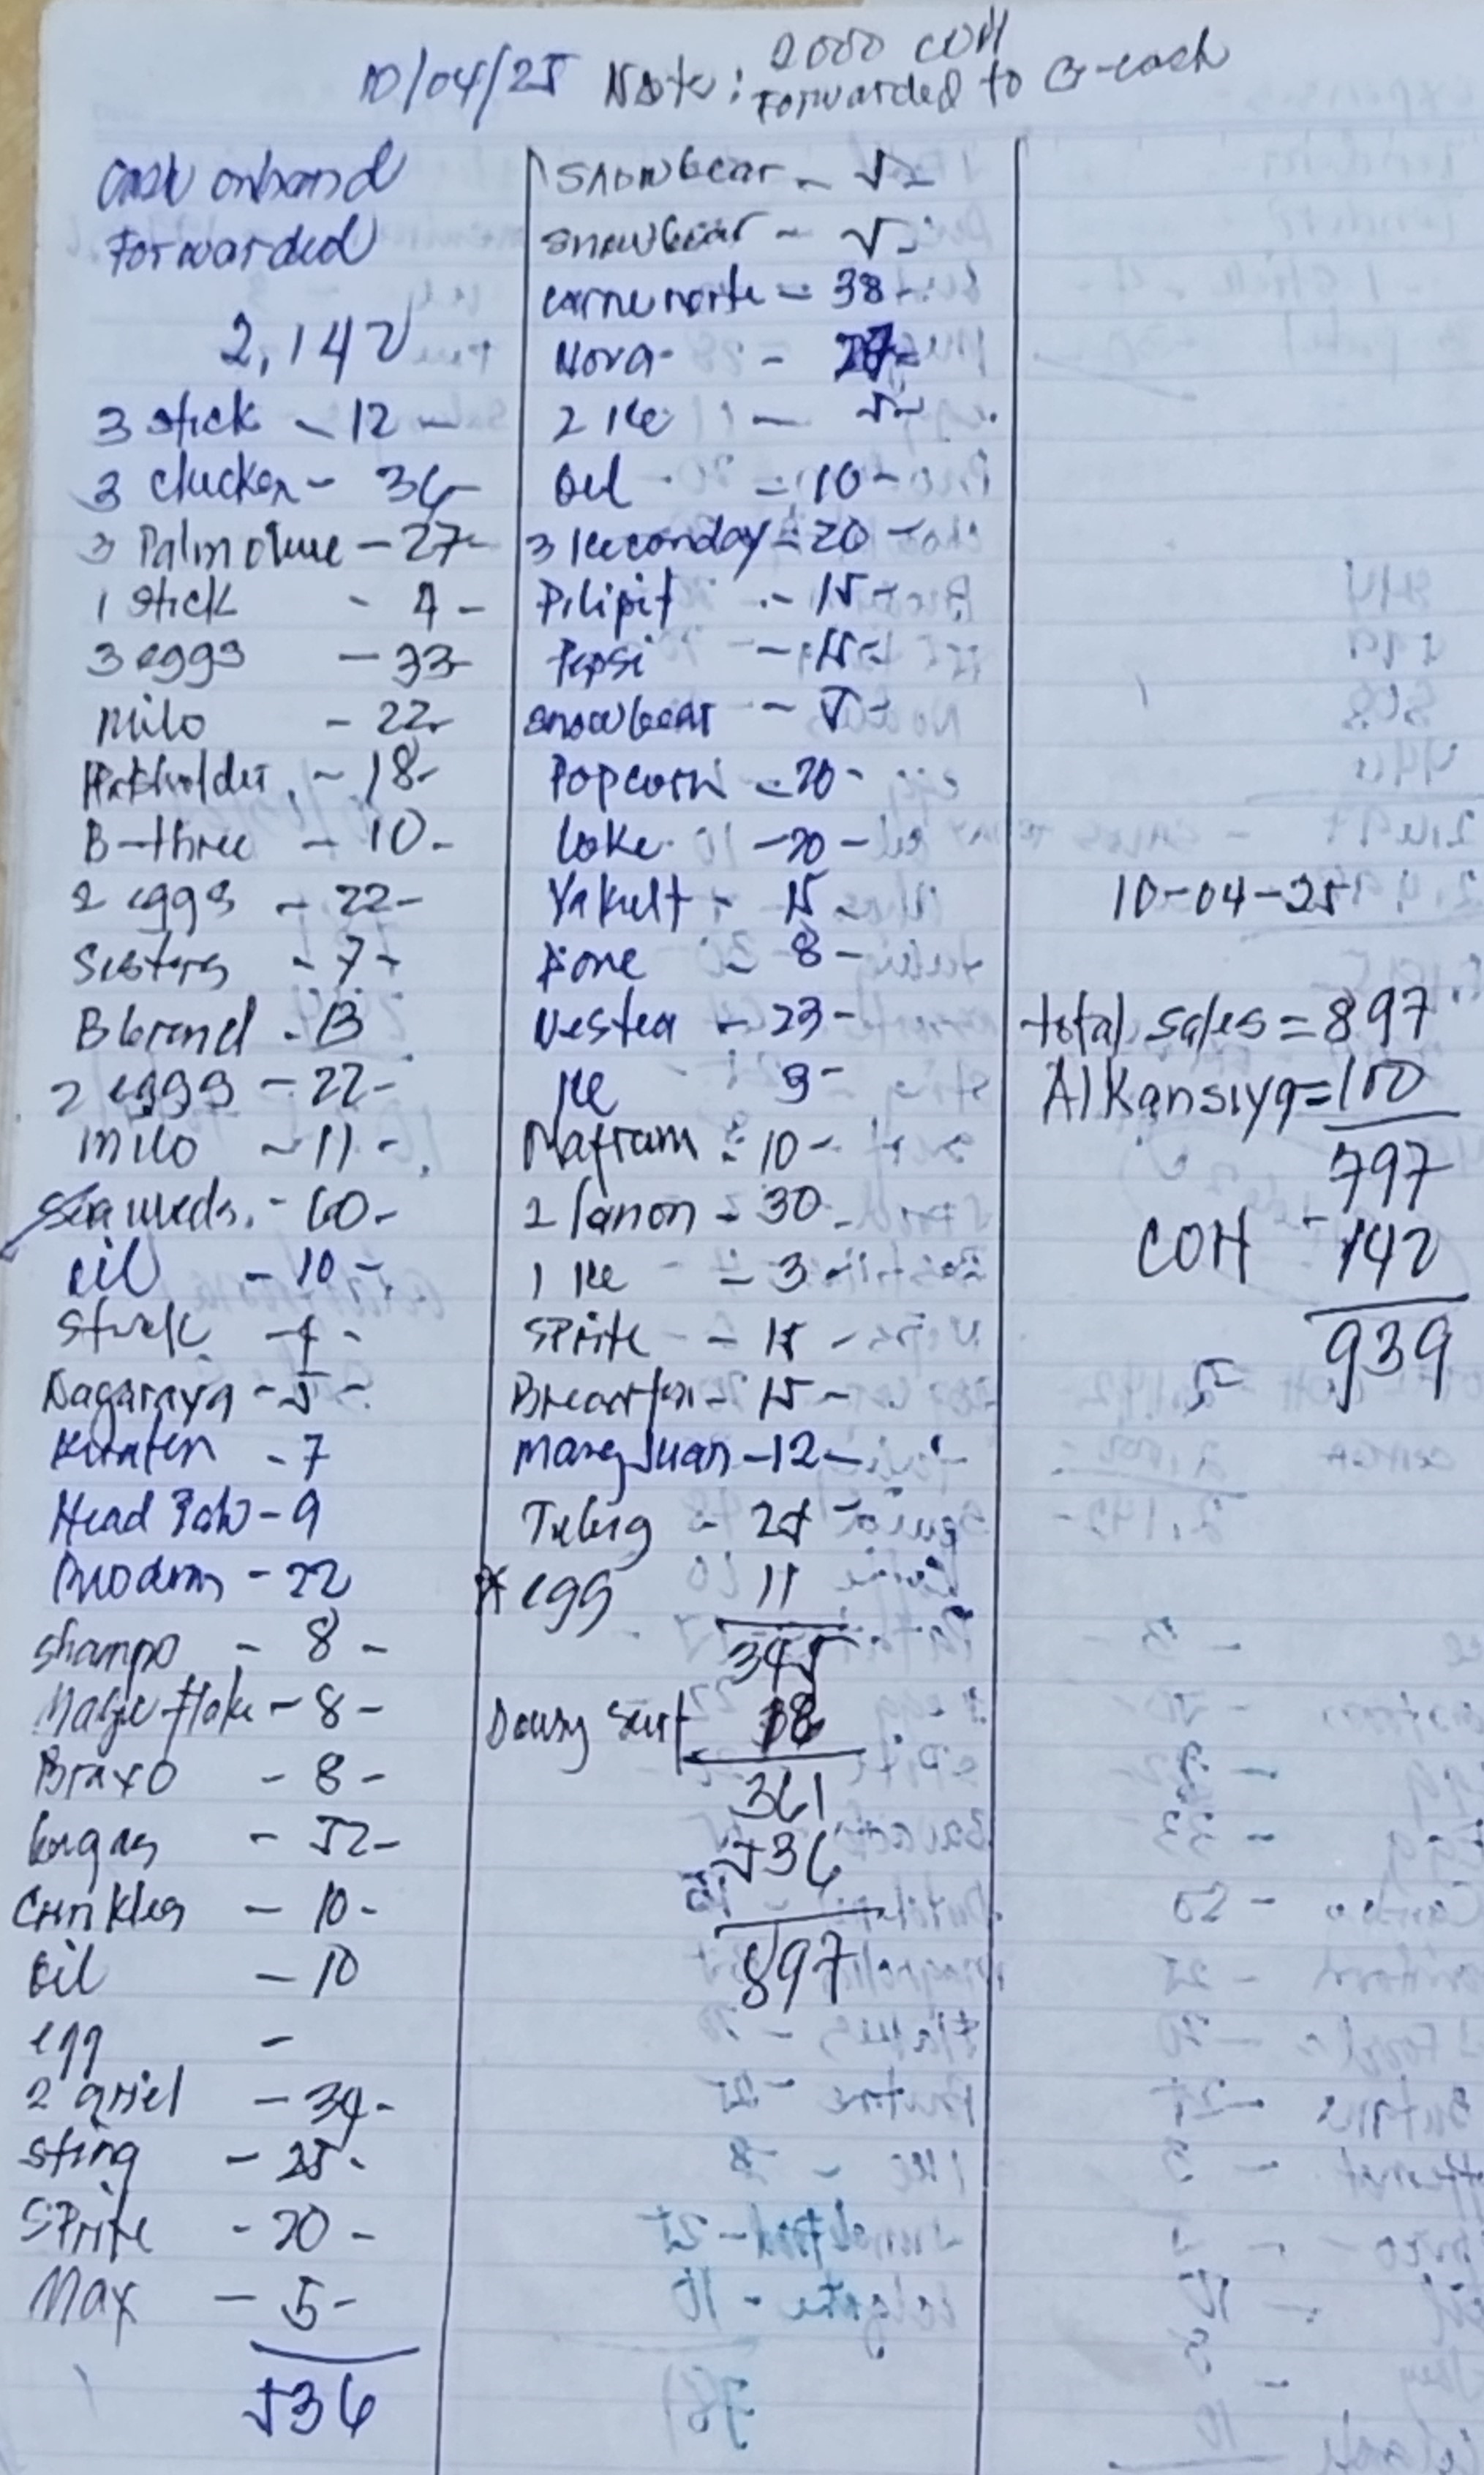 10/04/25 Note: 2000 COH
Forwarded to G-cash
Cash onhand
Forwarded
2,142
3 stick - 12 -
3 chicken - 36 -
3 Palmolive - 27 -
1 stick - 4 -
3 eggs - 33 -
milo - 22 -
- 18 -
B-three - 10 -
2 eggs - 22 -
Sisters - 7 -
B brand - 13
2 eggs - 22 -
milo - 11 -
Seaweeds. - 60 -
oil - 10 -
Stick - 4 -
Nagaraya - 5 -
- 7
Head - 9
- 22
Shampo - 8 -
Magic flake - 8 -
Braxo - 8 -
bugas - 52 -
Crinkles - 10 -
Oil - 10
egg -
2 - 34 -
Sting - 25 -
SPrite - 20 -
Max - 5 -
536
Snowbear - 5 -
snowbear - 5 -
carne norte - 38 -
Nova - 27 -
2 Ice - 5 -
Oil - 10 -
3 Icecanday - 20 -
Pilipit - 15 -
Pepsi - 15 -
snowbear - 5 -
Popcorn - 20 -
Coke - 20 -
Yakult - 15 -
- 8 -
Nestea - 23 -
Ice 9 -
- 10 -
2 Canon - 30 -
1 Ice - 3 -
SPrite - 15 -
- 15 -
Mang Juan - 12 -
Tubig - 25 -
egg 11
345
Downy Surf 18
361
536
897
10-04-25
total sales = 897
Alkansiya = 100
797
COH - 142
939